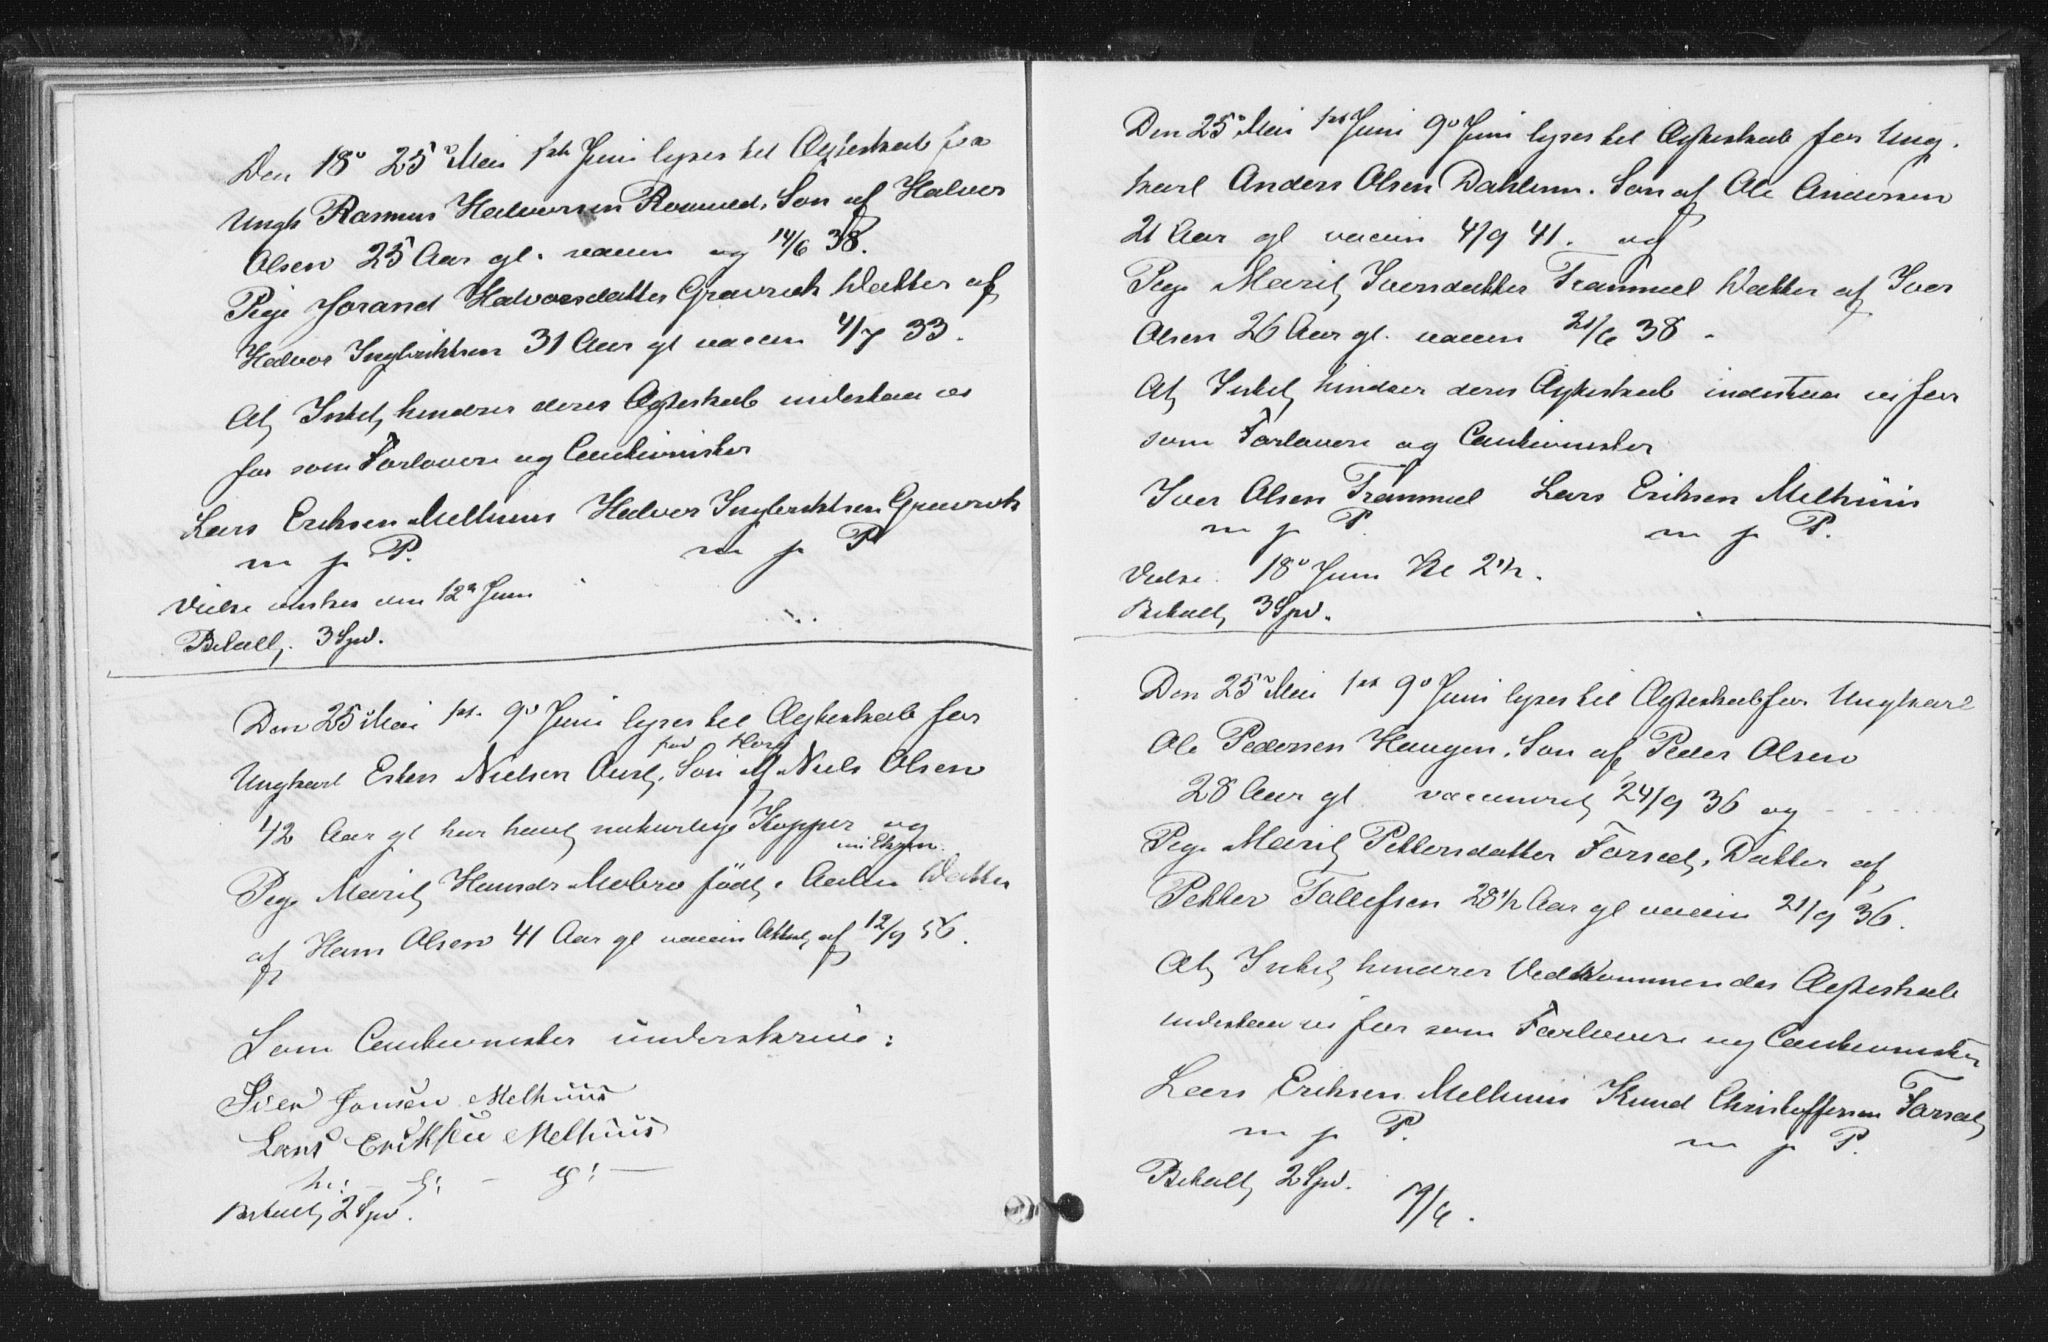 Den 18de 25de Mai 1ste Juni lyses til Ægteskab for
Ungk Rasmus Halvorsen Son af Halvor
Olsen 25 Aar gl. vaccin og 14/6 38.
Pige Jorand Halvorsdatter Gravrok Datter af
Halvor Ingbriktsen 31 Aar gl vaccin 4/7 33.
At Intet hindrer deres Ægteskab indestaa vi
for som Forlovere og Cautionister
Lars Eriksen Melhuus Halvor Ingbrichtsen Gravrok
m p P. m p P
Vielse ønskes den 12te Juni
Betalt. 3 Spd.
Den 25de Mai 1ste 9de Juni lyses til Ægteskab for
Ungkarl Esten Nielsen Aust, Son af Niels Olsen
paa Horg
42 Aar gl har havt naturlige Kopper og
Pige Marit Hansdr Mobro født i Aalen Datter
af Hans Olsen 41 Aar gl vaccin Attest af 12/9 56.
Som Cautionister underskrive:
Siver Jonsen Melhuus
Lars Eriksen Melhuus
Betalt 2 Spd.
Den 25de Mai 1ste Juni 9de Juni lyses til Ægteskab for Ung.
karl Anders Olsen Dahlem. Son af Ole Andersen
21 Aar gl vaccin 4/9 41. og
Pige Marit Iversdatter Tranmæl Datter af Iver
Olsen 26 Aar gl. vaccin 21/6 38 -
At Intet hindrer deres Ægteskab indestaa vi for
som Forlovere og Cautionister
Iver Olsen Tranmæl Lars Eriksen Melhuus
m p P. m p P.
Vielse. 18de Juni Kl 2½.
Betalt 3 Spd.
Den 25de Mai 1ste 9de Juni lyses til Ægteskab for Ungkarl
Ole Pedersen Haugen, Son af Peder Olsen
28 Aar gl vaccineret 24/9 36 og
Pige Marit Pettersdatter Forset, Datter af
Petter Tollefsen 28½ Aar gl vaccin 21/9 36.
At Intet hindrer Vedkommendes Ægteskab
indestaa vi for som Forlovere og Cautionister
Lars Eriksen Melhuus Knud Christoffersen Forset
m p P. m p P.
Betalt 2 Spd.
19/6.